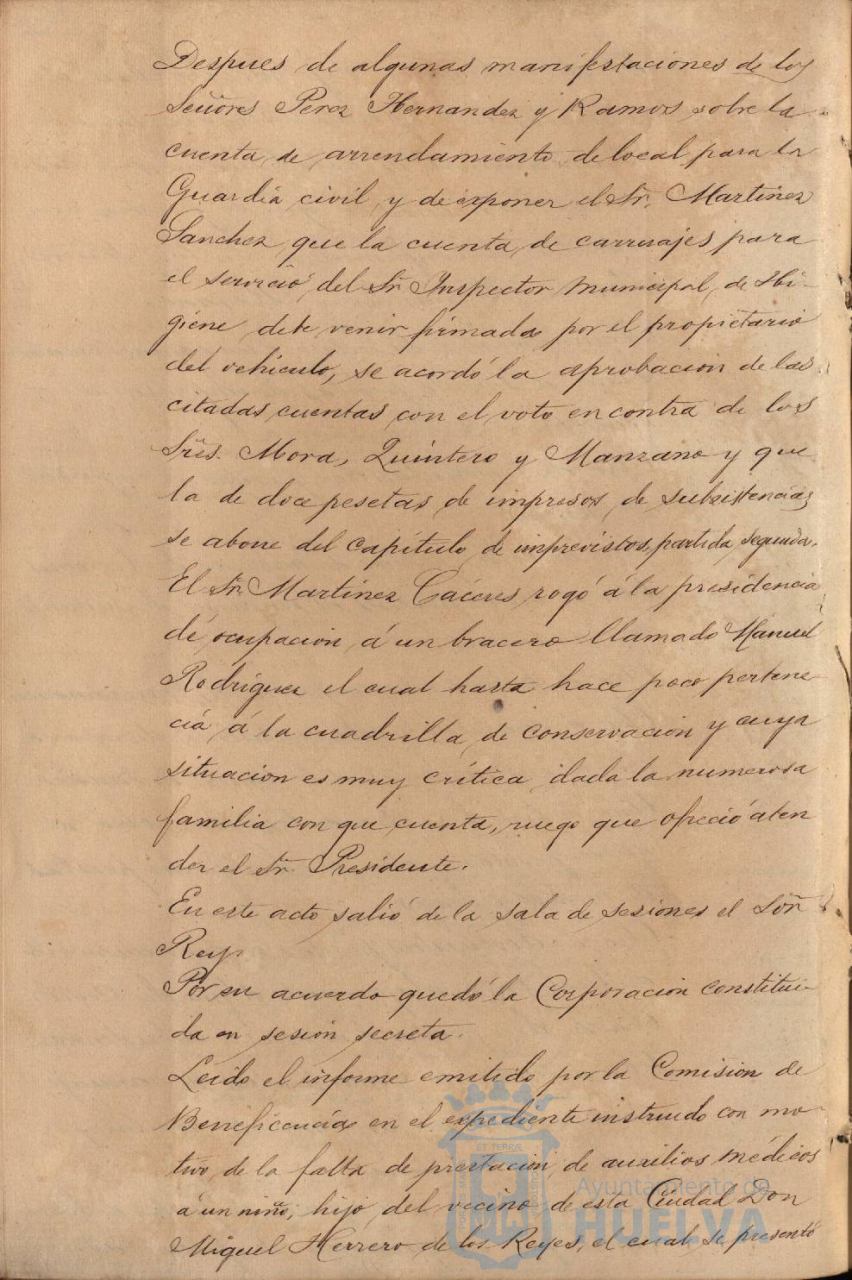 Despues de algunas manifestaciones de los
Señores Perez Hernandez y Ramos sobre la
cuenta de arrendamiento de local para la
Guardia civil y de exponer el Sr. Martinez
Sanchez que la cuenta de carruajes para
el servicio del Sr Inspector Municipal de Hi-
giene debe venir firmada por el propietario
del vehiculo, se acordó la aprobacion de las
citadas cuentas con el voto en contra de los
Sres. Mora, Quintero y Manzano y que
la de doce pesetas de impresos de subsistencias
se abone del capitulo de imprevistos, partida segunda.
El Sr. Martinez Caceres rogó á la presidencia
dé ocupacion á un bracero llamado Manuel
Rodriguez el cual hasta hace poco pertene-
cia á la cuadrilla de conservacion y cuya
situacion es muy crítica dada la numerosa
familia con que cuenta, ruego que ofreció aten
der el Sr. Presidente.
En este acto salió de la sala de sesiones el Sor
Rey.
Por su acuerdo quedó la Corporacion constitui-
da en sesion secreta.
Leido el informe emitido por la Comision de
Beneficencia en el expediente instruido con mo-
tivo de la falta de prestacion de auxilios médicos
á un niño, hijo del vecino de esta Ciudad Don
Miguel Herrero de los Reyes, el cual se presentó
Ayuntamiento de
HUELVA